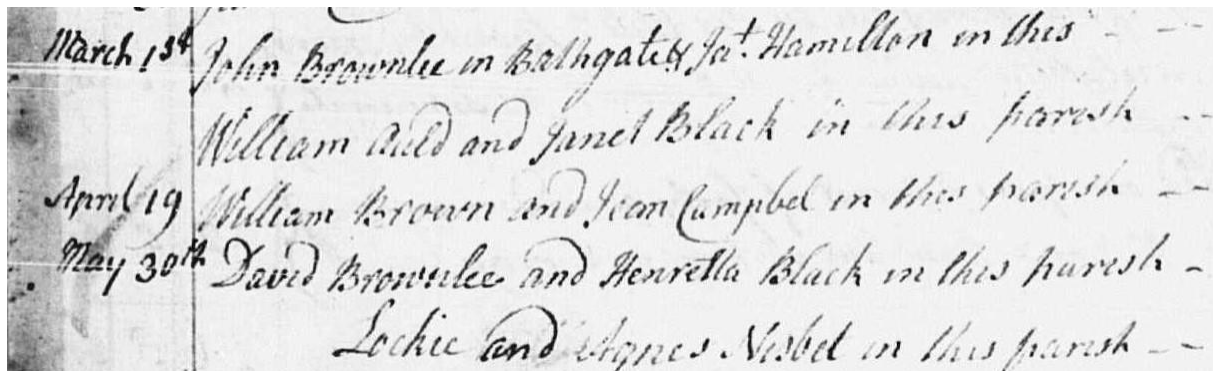 March 1st John Brownlee in Bathgate & Jat. Hamilton in this - - -
William Auld and Janet Black in this parish - -
April 19 William Brown and Jean Campbel in this parish - -
May 30th David Brownlee and Henretta Black in this parish -
Lockie and Agnes Nisbet in this parish - -